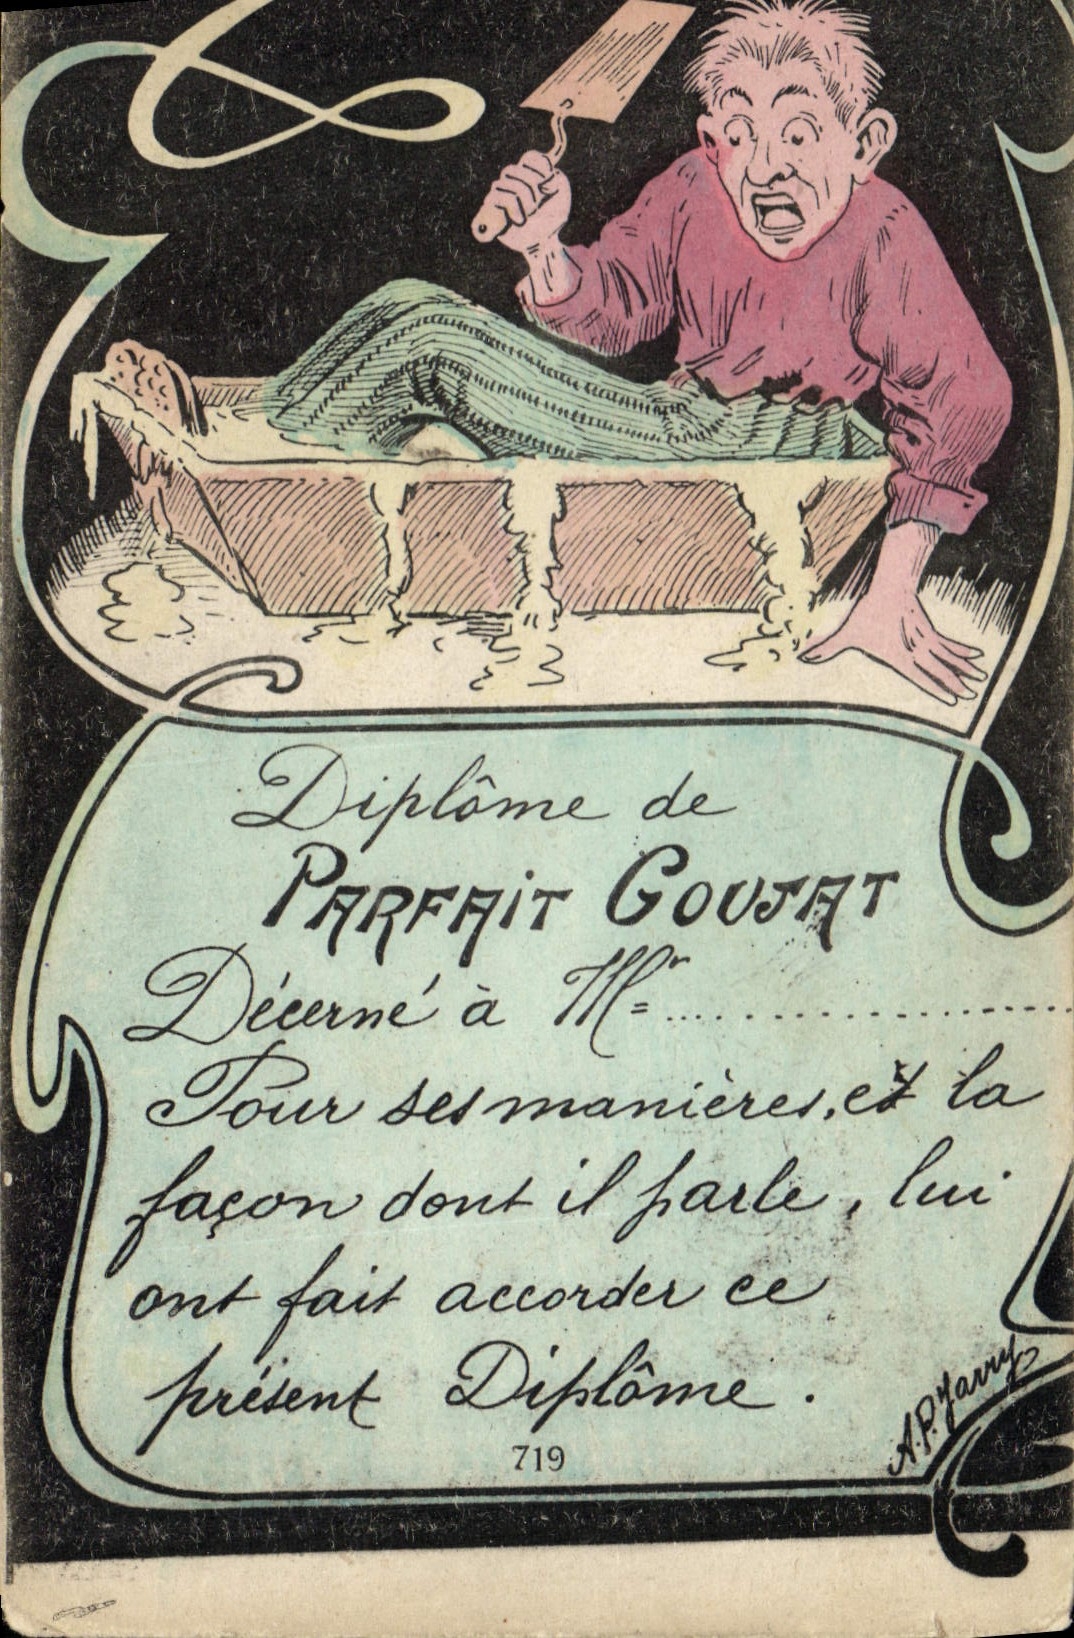 Diplôme de
PARFAiT GOUJAT
Décerné à Mr ........................
Pour ses manières, et la
façon dont il parle, lui
ont fait accorder ce
présent Diplôme.
719
A.P. Jarry